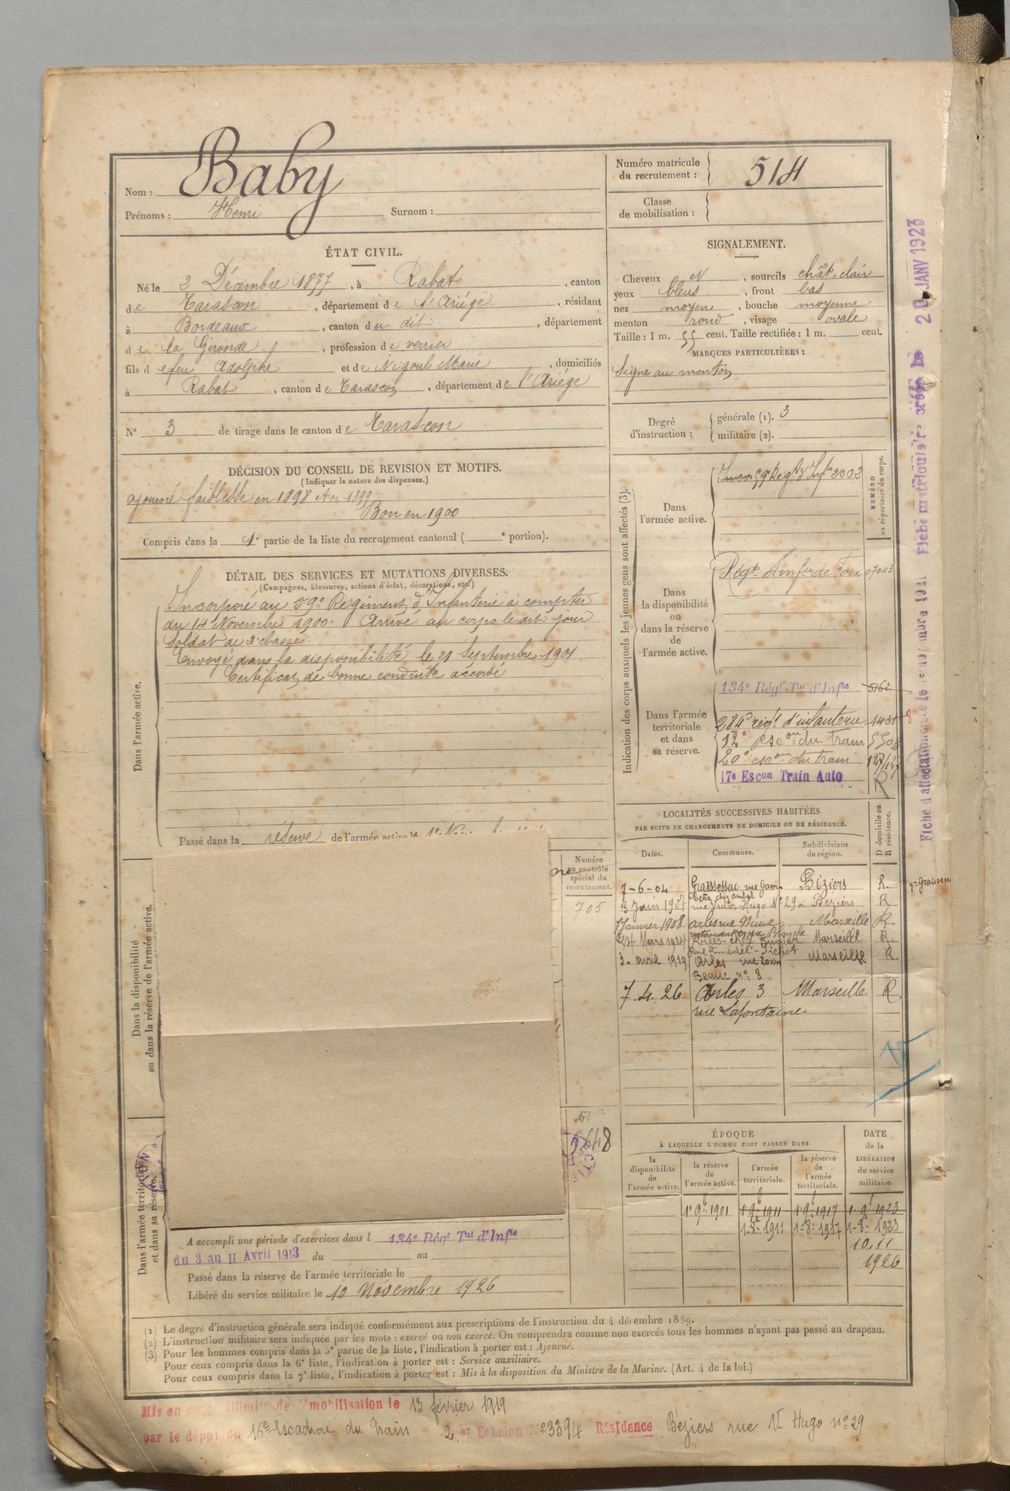 Nom : Baby
Prénoms : Henri Surnom :
Numéro matricule
du recrutement : 514
Classe
de mobilisation :
ÉTAT CIVIL.
Né le 2 Décembre 1877, à Rabat, canton
de Tarascon, département de l'Ariège, résidant
à Bordeaux, canton du dit, département
de la Gironde, profession de verrier
fils d efeu Adolphe et de Nigoul Marie, domiciliés
à Rabat, canton de Tarascon, département de l'Ariège
N° 3 de tirage dans le canton de Tarascon
DÉCISION DU CONSEIL DE REVISION ET MOTIFS.
(Indiquer la nature des dispenses.)
ajourné faiblesse en 1898 et en 1899
Bon en 1900
Compris dans la 1e partie de la liste du recrutement cantonal ( e portion).
DÉTAIL DES SERVICES ET MUTATIONS DIVERSES.
(Campagnes, blessures, actions d'éclat, décorations, etc.)
Dans l'armée active.
Incorporé au 59e Régiment d'Infanterie à compter
du 14 Novembre 1900. Arrivé au corps le dit jour
Soldat de 2e classe.
Envoyé dans la disponibilité le 21 Septembre 1901
Certificat de bonne conduite accordé
Passé dans la réserve de l'armée active le 1er
Dans la disponibilité
ou dans la réserve de l'armée active.
Numéro
au contrôle
spécial du
recrutement.
705
Dans l'armée territoriale
et dans sa réserve.
5648
A accompli une période d'exercices dans l 134e Régt Tal d'Infie
du 3 au 11 Avril 1913 du au
Passé dans la réserve de l'armée territoriale le
Libéré du service militaire le 10 Novembre 1926
SIGNALEMENT.
Cheveux et, sourcils chât. clair
yeux bleus, front bas
nez moyen, bouche moyenne
menton rond, visage ovale
Taille : 1 m. 55 cent. Taille rectifiée : 1 m. cent.
MARQUES PARTICULIÈRES :
Signe au menton
Degré
d'instruction :
générale (1). 3
militaire (2).
Indication des corps auxquels les jeunes gens sont affectés (3).
NUMÉRO
au répertoire du corps.
Dans
l'armée active.
Incor 59 Régt d'Infie 2002
Dans
la disponibilité
ou
dans la réserve
de
l'armée active.
Régt d'infie de Foix 07043
Dans l'armée
territoriale
et dans
sa réserve.
134e Régt Tal d'Infie 5162
284e régt d'infanterie 1431
12e escon du Train 5508
20e escon du train
17e Escon Train Auto R
LOCALITÉS SUCCESSIVES HABITÉES
PAR SUITE DE CHANGEMENTS DE DOMICILE OU DE RÉSIDENCE.
Dates. Communes. Subdivisions
de région.
D domicile ou
R résidence.
7-6-04 Graissessac Béziers R.
3 Juin 1907 rue Victor Hugo N° 29 à Béziers R
7 Janvier 1908 arles rue Neuve Marseille R.
Arles chez Marseille R.
3. avril 1919 Arles Marseille R.
n° 8
7.4.26 Arles 3 Marseille R.
rue Lafontaine
ÉPOQUE
À LAQUELLE L'HOMME DOIT PASSER DANS
DATE
de la
LIBÉRATION
du service
militaire.
la
disponibilité
de
l'armée active.
la réserve
de
l'armée active.
l'armée
territoriale.
la réserve
de
l'armée
territoriale.
1er 9bre 1901 1er 9bre 1911 1er 9bre 1917 1er 9bre 1923
1-8-1911 1-8-1917 1-8-1923
10.11
1926
(1) Le degré d'instruction générale sera indiqué conformément aux prescriptions de l'instruction du 4 décembre 1889.
(2) L'instruction militaire sera indiquée par les mots : exercé ou non exercé. On comprendra comme non exercés tous les hommes n'ayant pas passé au drapeau.
(3) Pour les hommes compris dans la 5e partie de la liste, l'indication à porter est : Ajourné.
Pour ceux compris dans la 6e liste, l'indication à porter est : Service auxiliaire.
Pour ceux compris dans la 7e liste, l'indication à porter est : Mis à la disposition du Ministre de la Marine. (Art. 4 de la loi.)
Mis en congé illimité de démobilisation le 13 février 1919
par le dépôt du 16e Escadron du Train 2e Echelon N° 3394 Résidence Béziers rue V. Hugo n° 29
20 JANV 1923